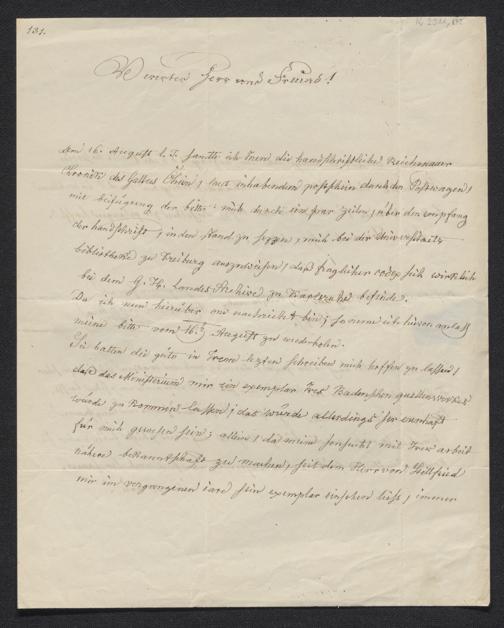 131.
Verehrter Herr und Freund!
Am 16. August l. J. sandte ich Inen die handschriftliche Reichenauer
Chronik des Gallus Öhein, laut inhabendem postschein durch den Postwagen,
mit beifügung der bitte: mich durch ein par zeilen, über den empfang
der handschrift, in den stand zu sezen, mich bei der Universitäts-
bibliotheke zu Freiburg auszuweisen, daß fraglicher codex sich wirklich
bei dem G. H. Landes Archive zu Karlsruhe befinde.
Da ich nun hierüber one nachricht bin, so neme ich hievon anlaß
meine bitte vom 16.ⁿ August zu widerholen.
Sie hatten die güte in Irem lezten schreiben mich hoffen zu laßen,
daß das Ministerium mir ein exemplar Irer Badenschen quellenwerkes
würde zukommen laßen; das würde allerdings ser erwünscht
für mich gewesen sein; allein, da meine sehnsucht mit Irer arbeit
nähere bekanntschaft zu machen, seit dem Herr von Hillfried
mir im vergangenen jare sein exemplar einsehen ließ, immer